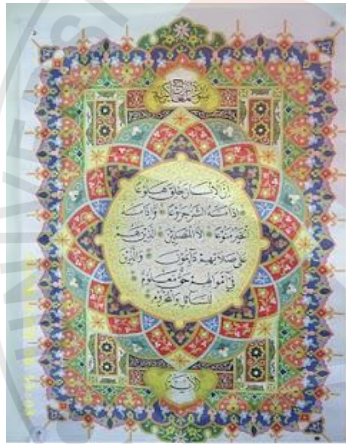 سورة المعارج مكية
إن الإنسان خلق هلوعا
إذا مسه الشر جزوعا وإذا مسه
الخير منوعا إلا المصلين الذين هم
على صلاتهم دائمون والذين
في أموالهم حق معلوم
للسائل والمحروم